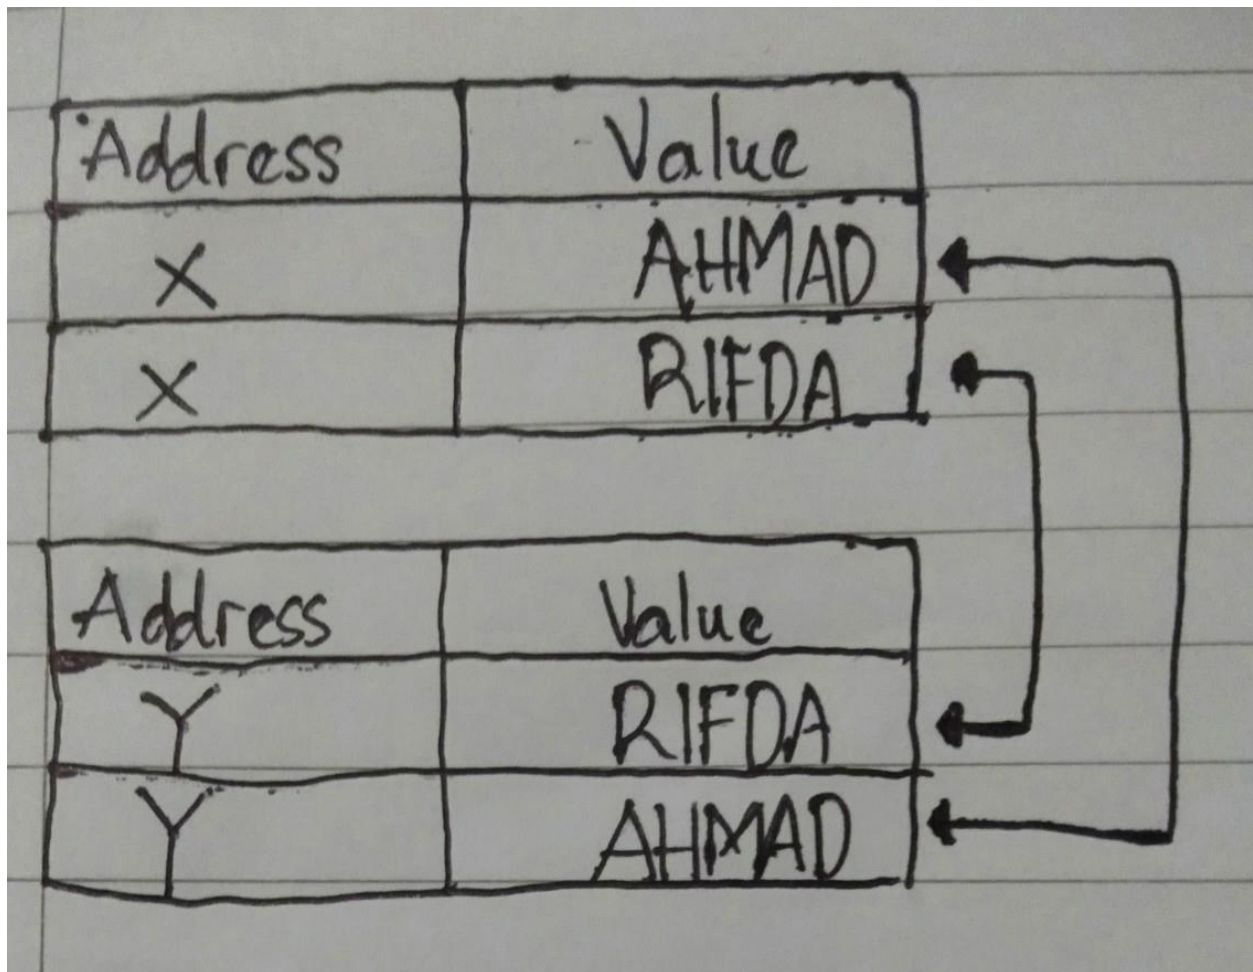 Address Value
X AHMAD
X RIFDA
Address Value
Y RIFDA
Y AHMAD